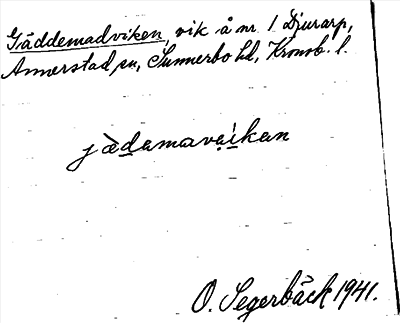 Gäddemadviken, vik å nr 1 Djurarp,
Annerstad sn, Sunnerbo hd, Kronob. l.
jädamaveikan
O. Segerbäck 1941.